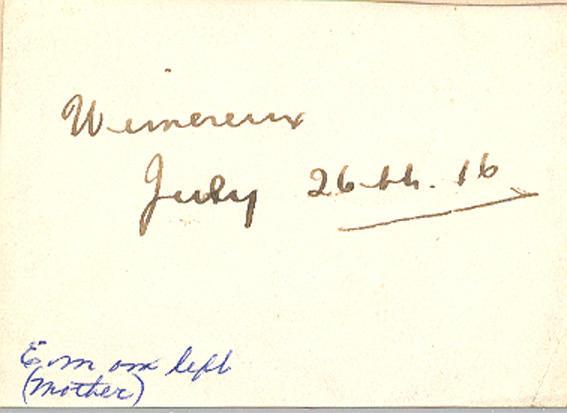 Wimereux
July 26th. 16
E.M on left
(Mother)